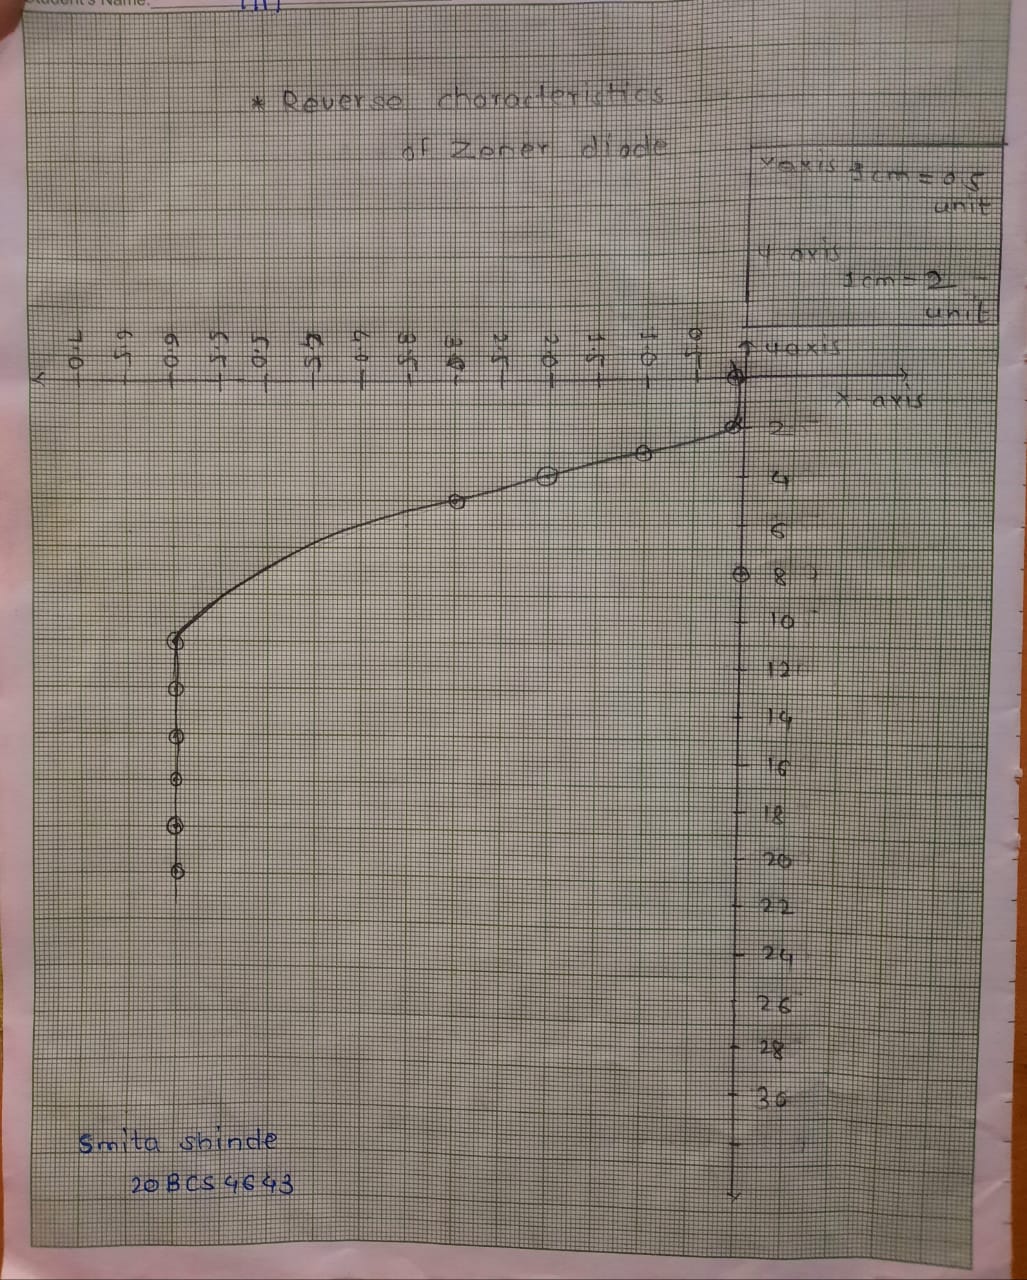 Student's Name:
* Reverse characteristics
of Zener diode
x axis 1cm = 0.5
unit
y axis
1cm = 2
unit
7.0 6.5 6.0 5.5 5.0 4.5 4.0 3.5 3.0 2.5 2.0 1.5 1.0 0.5
y axis
x axis
2
4
6
8
10
12
14
16
18
20
22
24
26
28
30
Smita shinde
20BCS4643